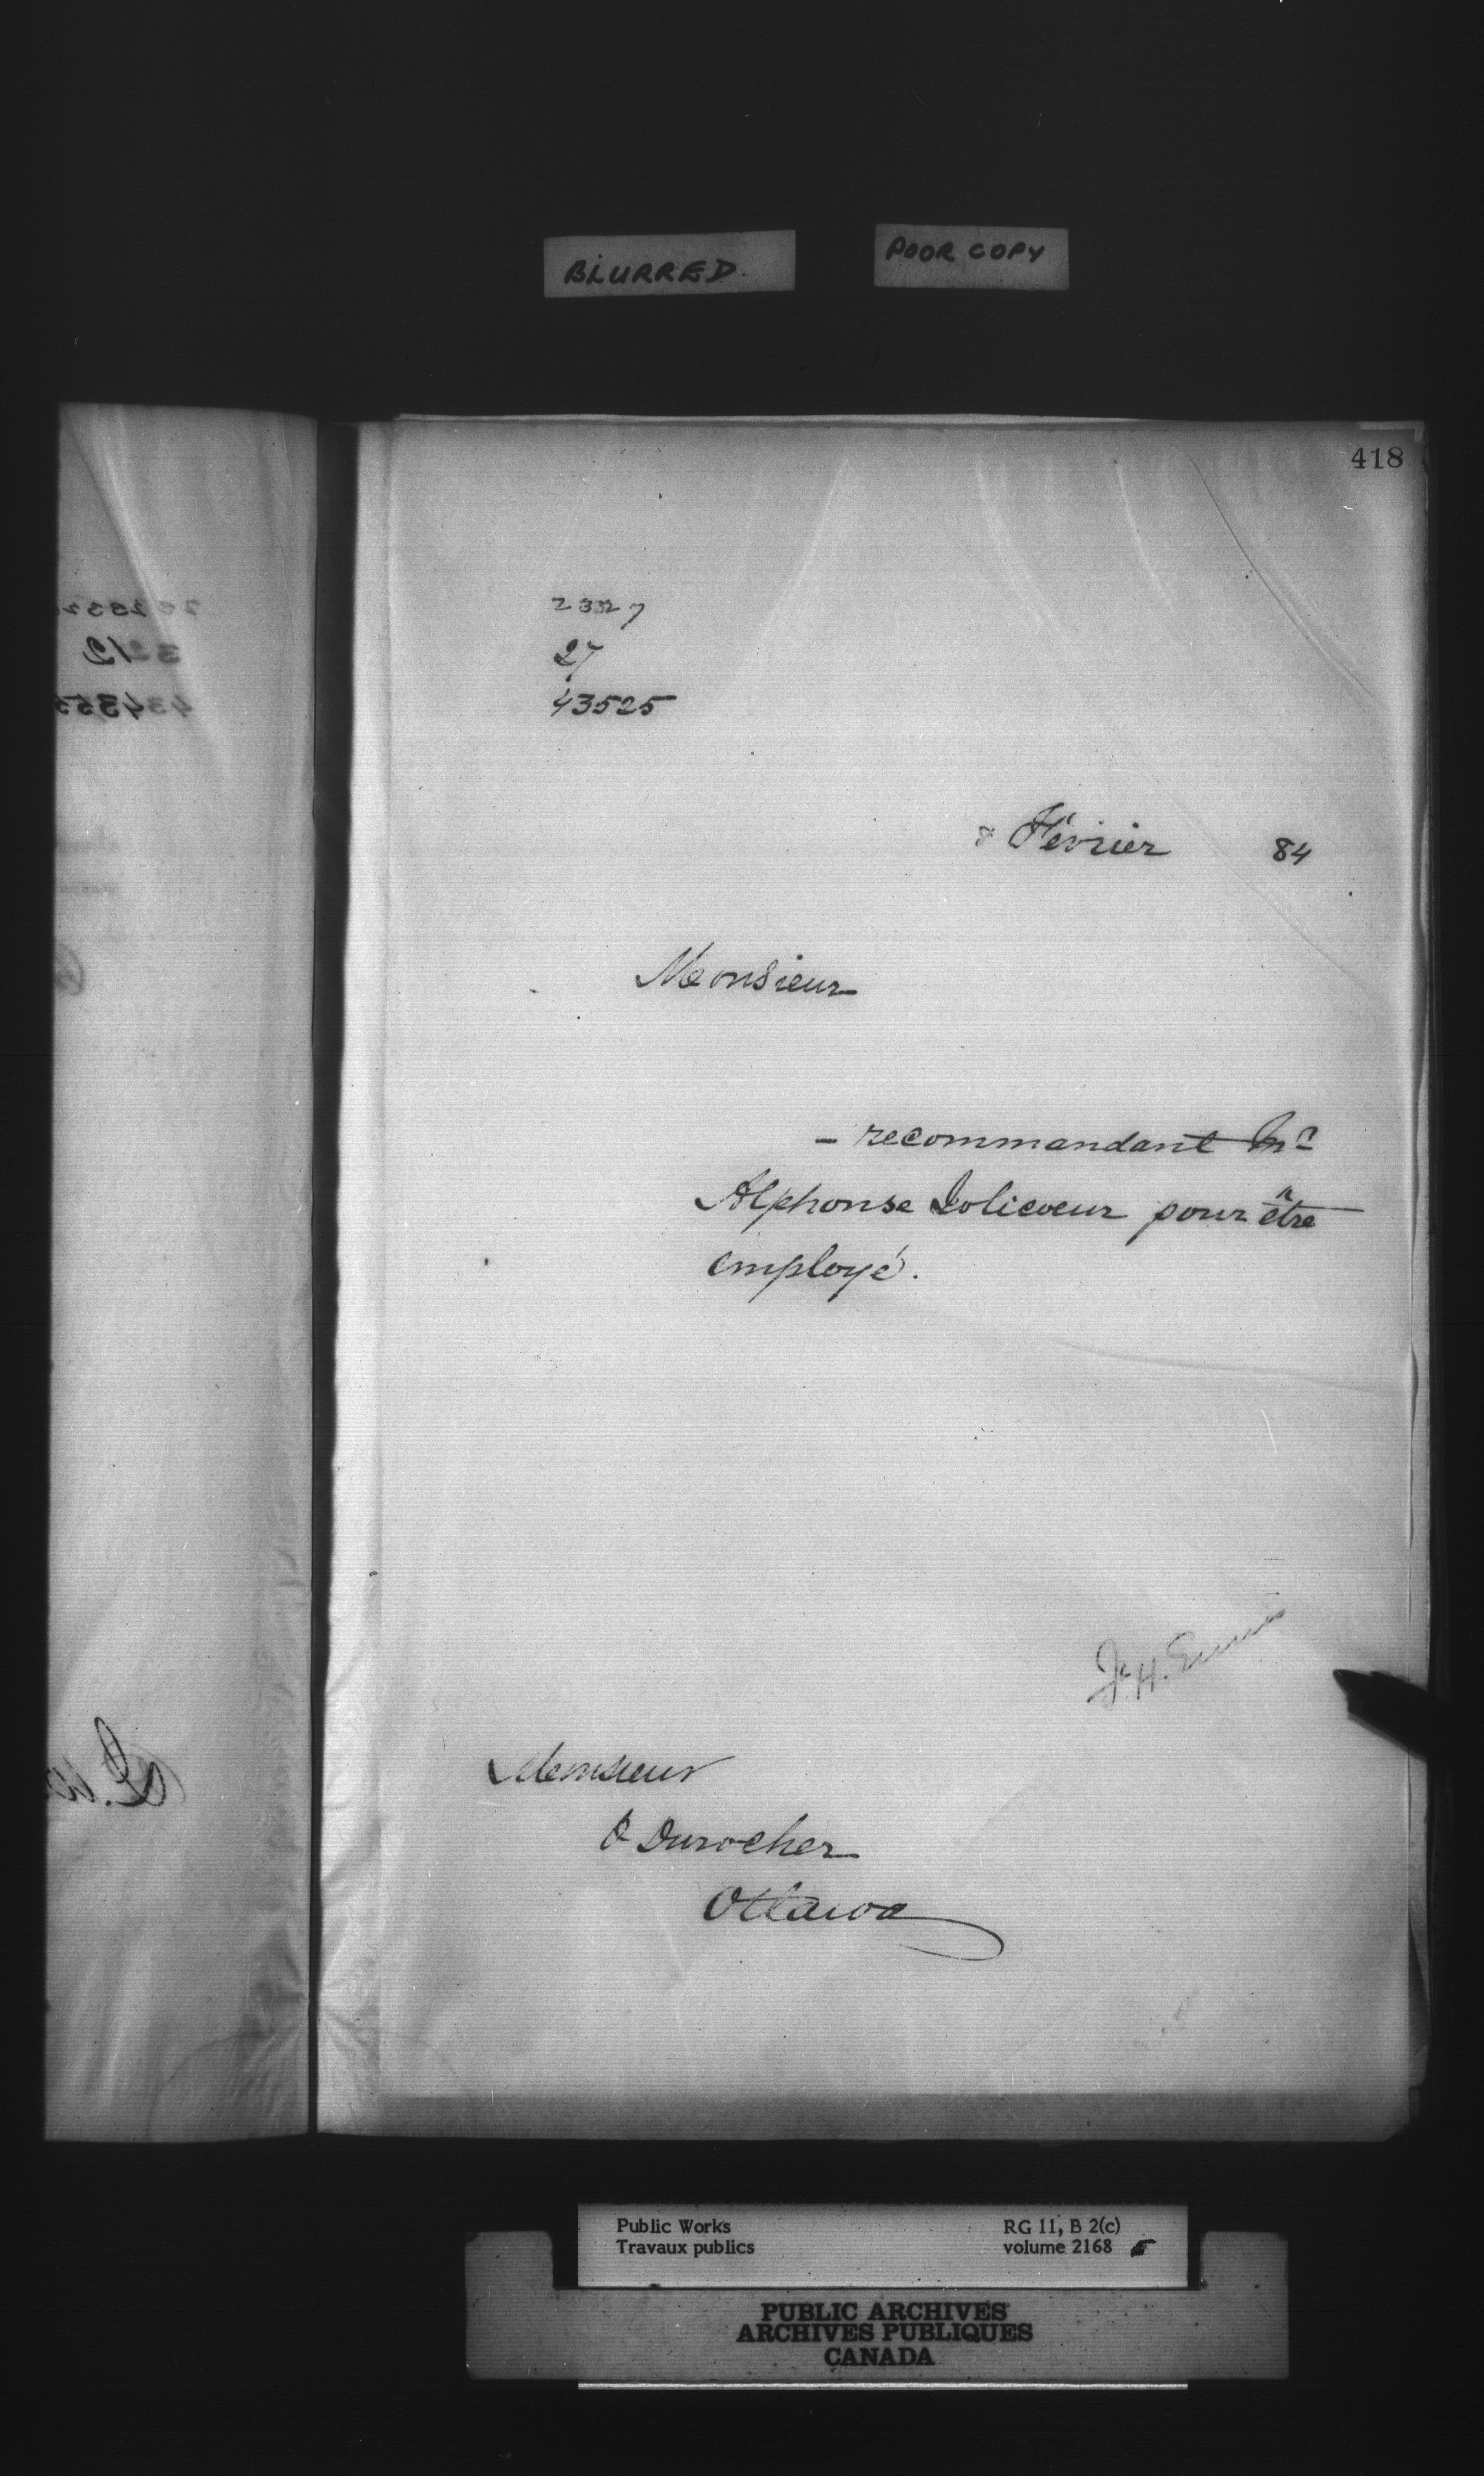 BLURRED.
POOR COPY
418
2327
27
43525
8 Février 84
Monsieur
- recommandant Mr
Alphonse Jolicoeur pour être
employé.
J. H.
Monsieur
O Durocher
Ottawa
Public Works
Travaux publics
RG 11, B 2(c)
volume 2168
PUBLIC ARCHIVES
ARCHIVES PUBLIQUES
CANADA